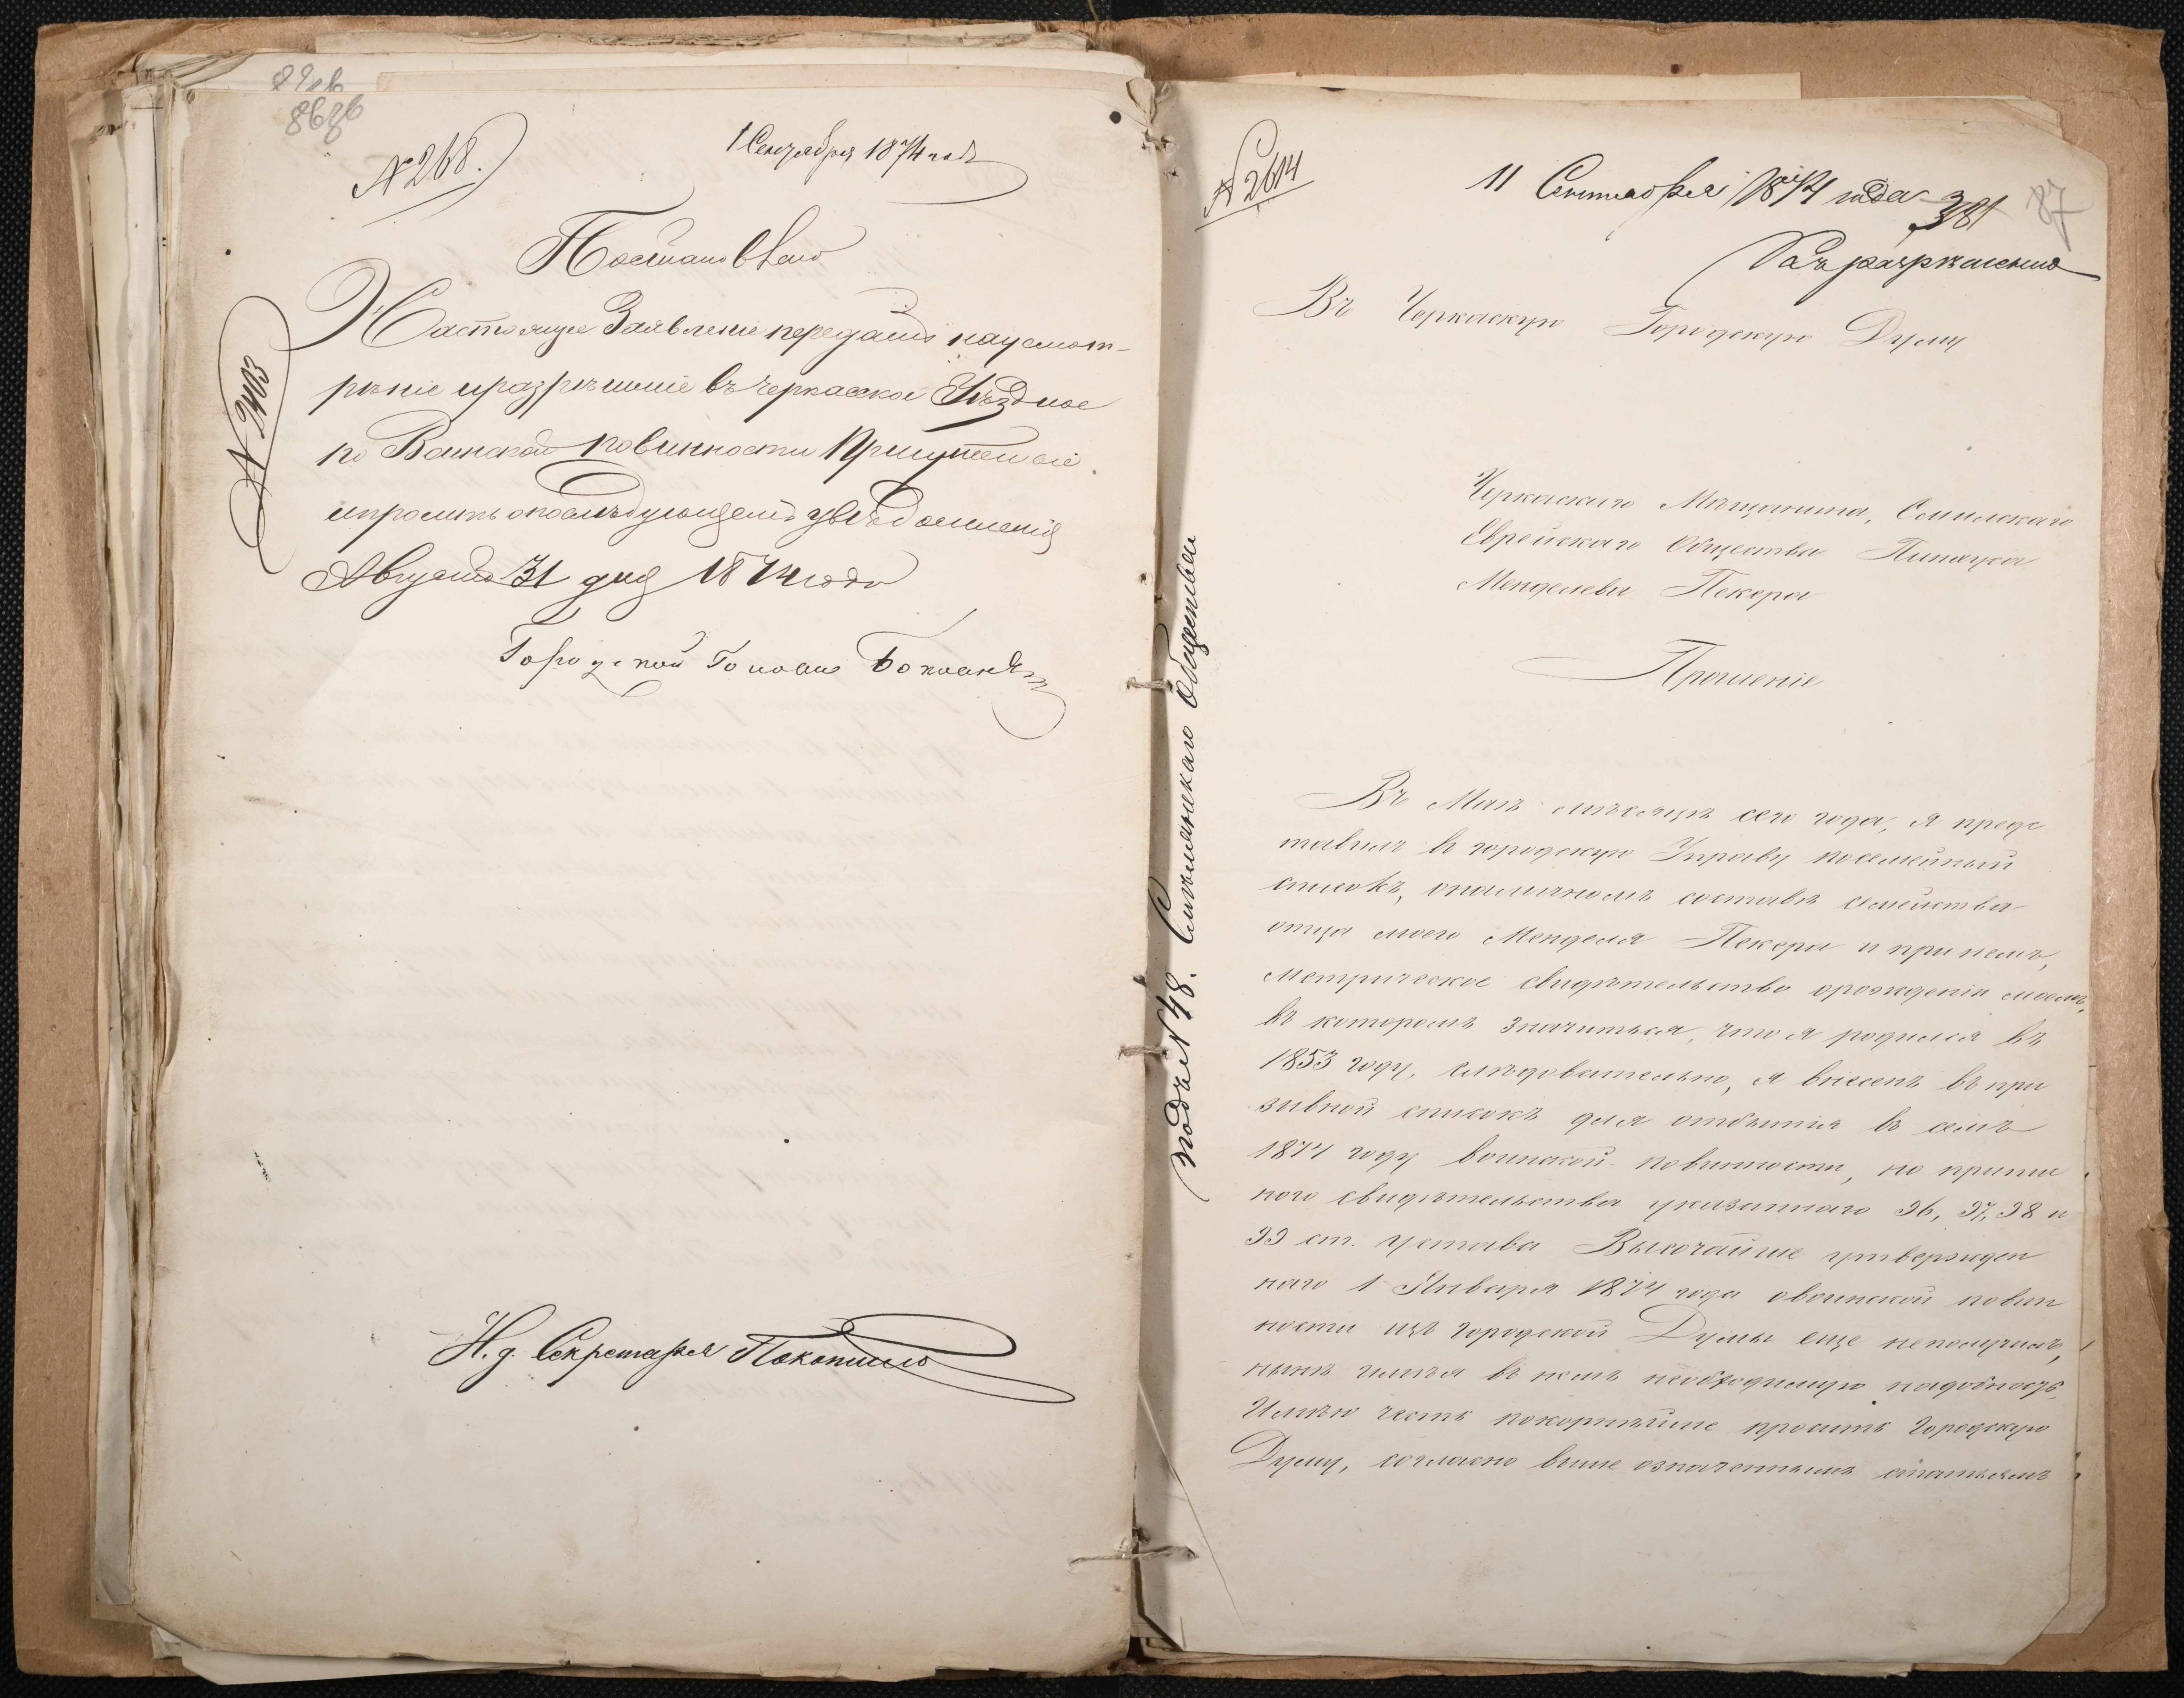 № 268.
1 Сентября 1874 года
Постановлено
Настоящее Заявленіе передать на усмот-
рѣніе и разрѣшеніе въ Черкасское Уѣздное
по Воинской повинности Присутствіе
и просить о послѣдующемъ увѣдомленія
Августа 31 дня 1874 года
Городской Голова
И. д. Секретаря
№ 2403
№ 2614
11 Сентября 1874 года
381
87
Въ Черкаскую Городскую Думу
Черкаскаго Мѣщанина, Смилскаго
Еврейскаго Общества Пинхуса
Менделева Пекера
Прошеніе
Въ Маѣ мѣсяцѣ сего года, я предс
тавилъ въ городскую Управу посемейный
списокъ, о наличномъ составѣ семейства
отца моего Менделя Пекера и при немъ,
метрическое свидѣтельство о рожденіи моемъ,
въ которомъ значиться, что я родился въ
1853 году, слѣдовательно, я внесенъ въ при
зивной списокъ для отбытія въ семъ
1874 году воинской повинности, но припис
ного свидѣтельства указаннаго 96, 97, 98 и
99 ст. устава Высочайше утвержден
наго 1 Января 1874 года о воинской повин
ности изъ городской Думы еще неполучилъ,
нынѣ имѣя въ немъ необходимую надобность,
Имѣю честь покорнѣйше просить Городскую
Думу, согласно выше означеннымъ статьямъ
подъ № 48. Смѣлянскаго Общества